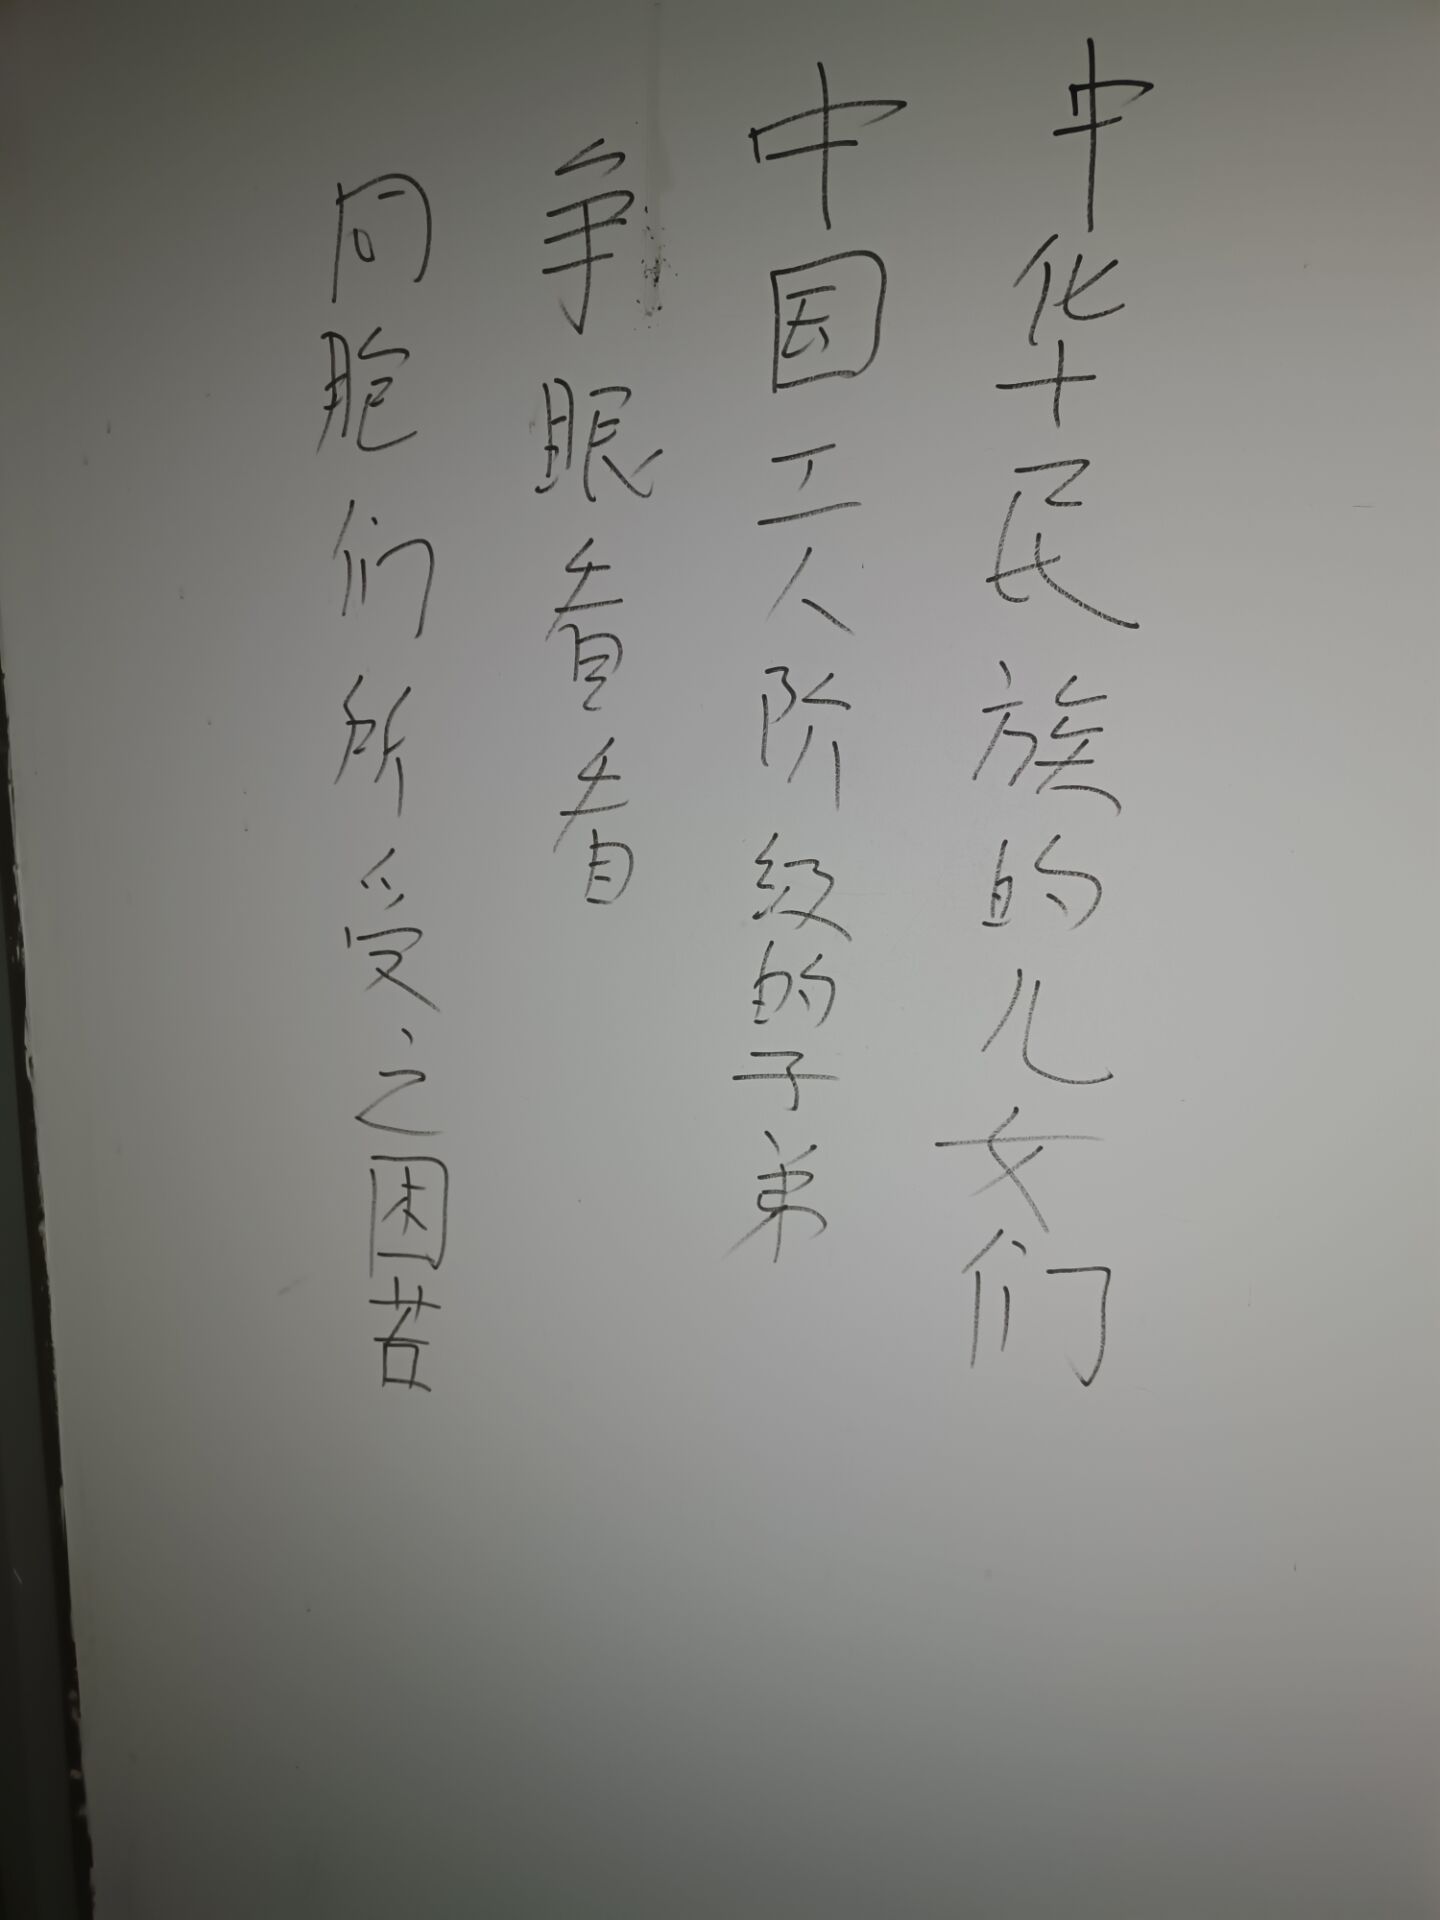 中华民族的儿女们
中国工人阶级的子弟
争眼看看
同胞们所受之困苦